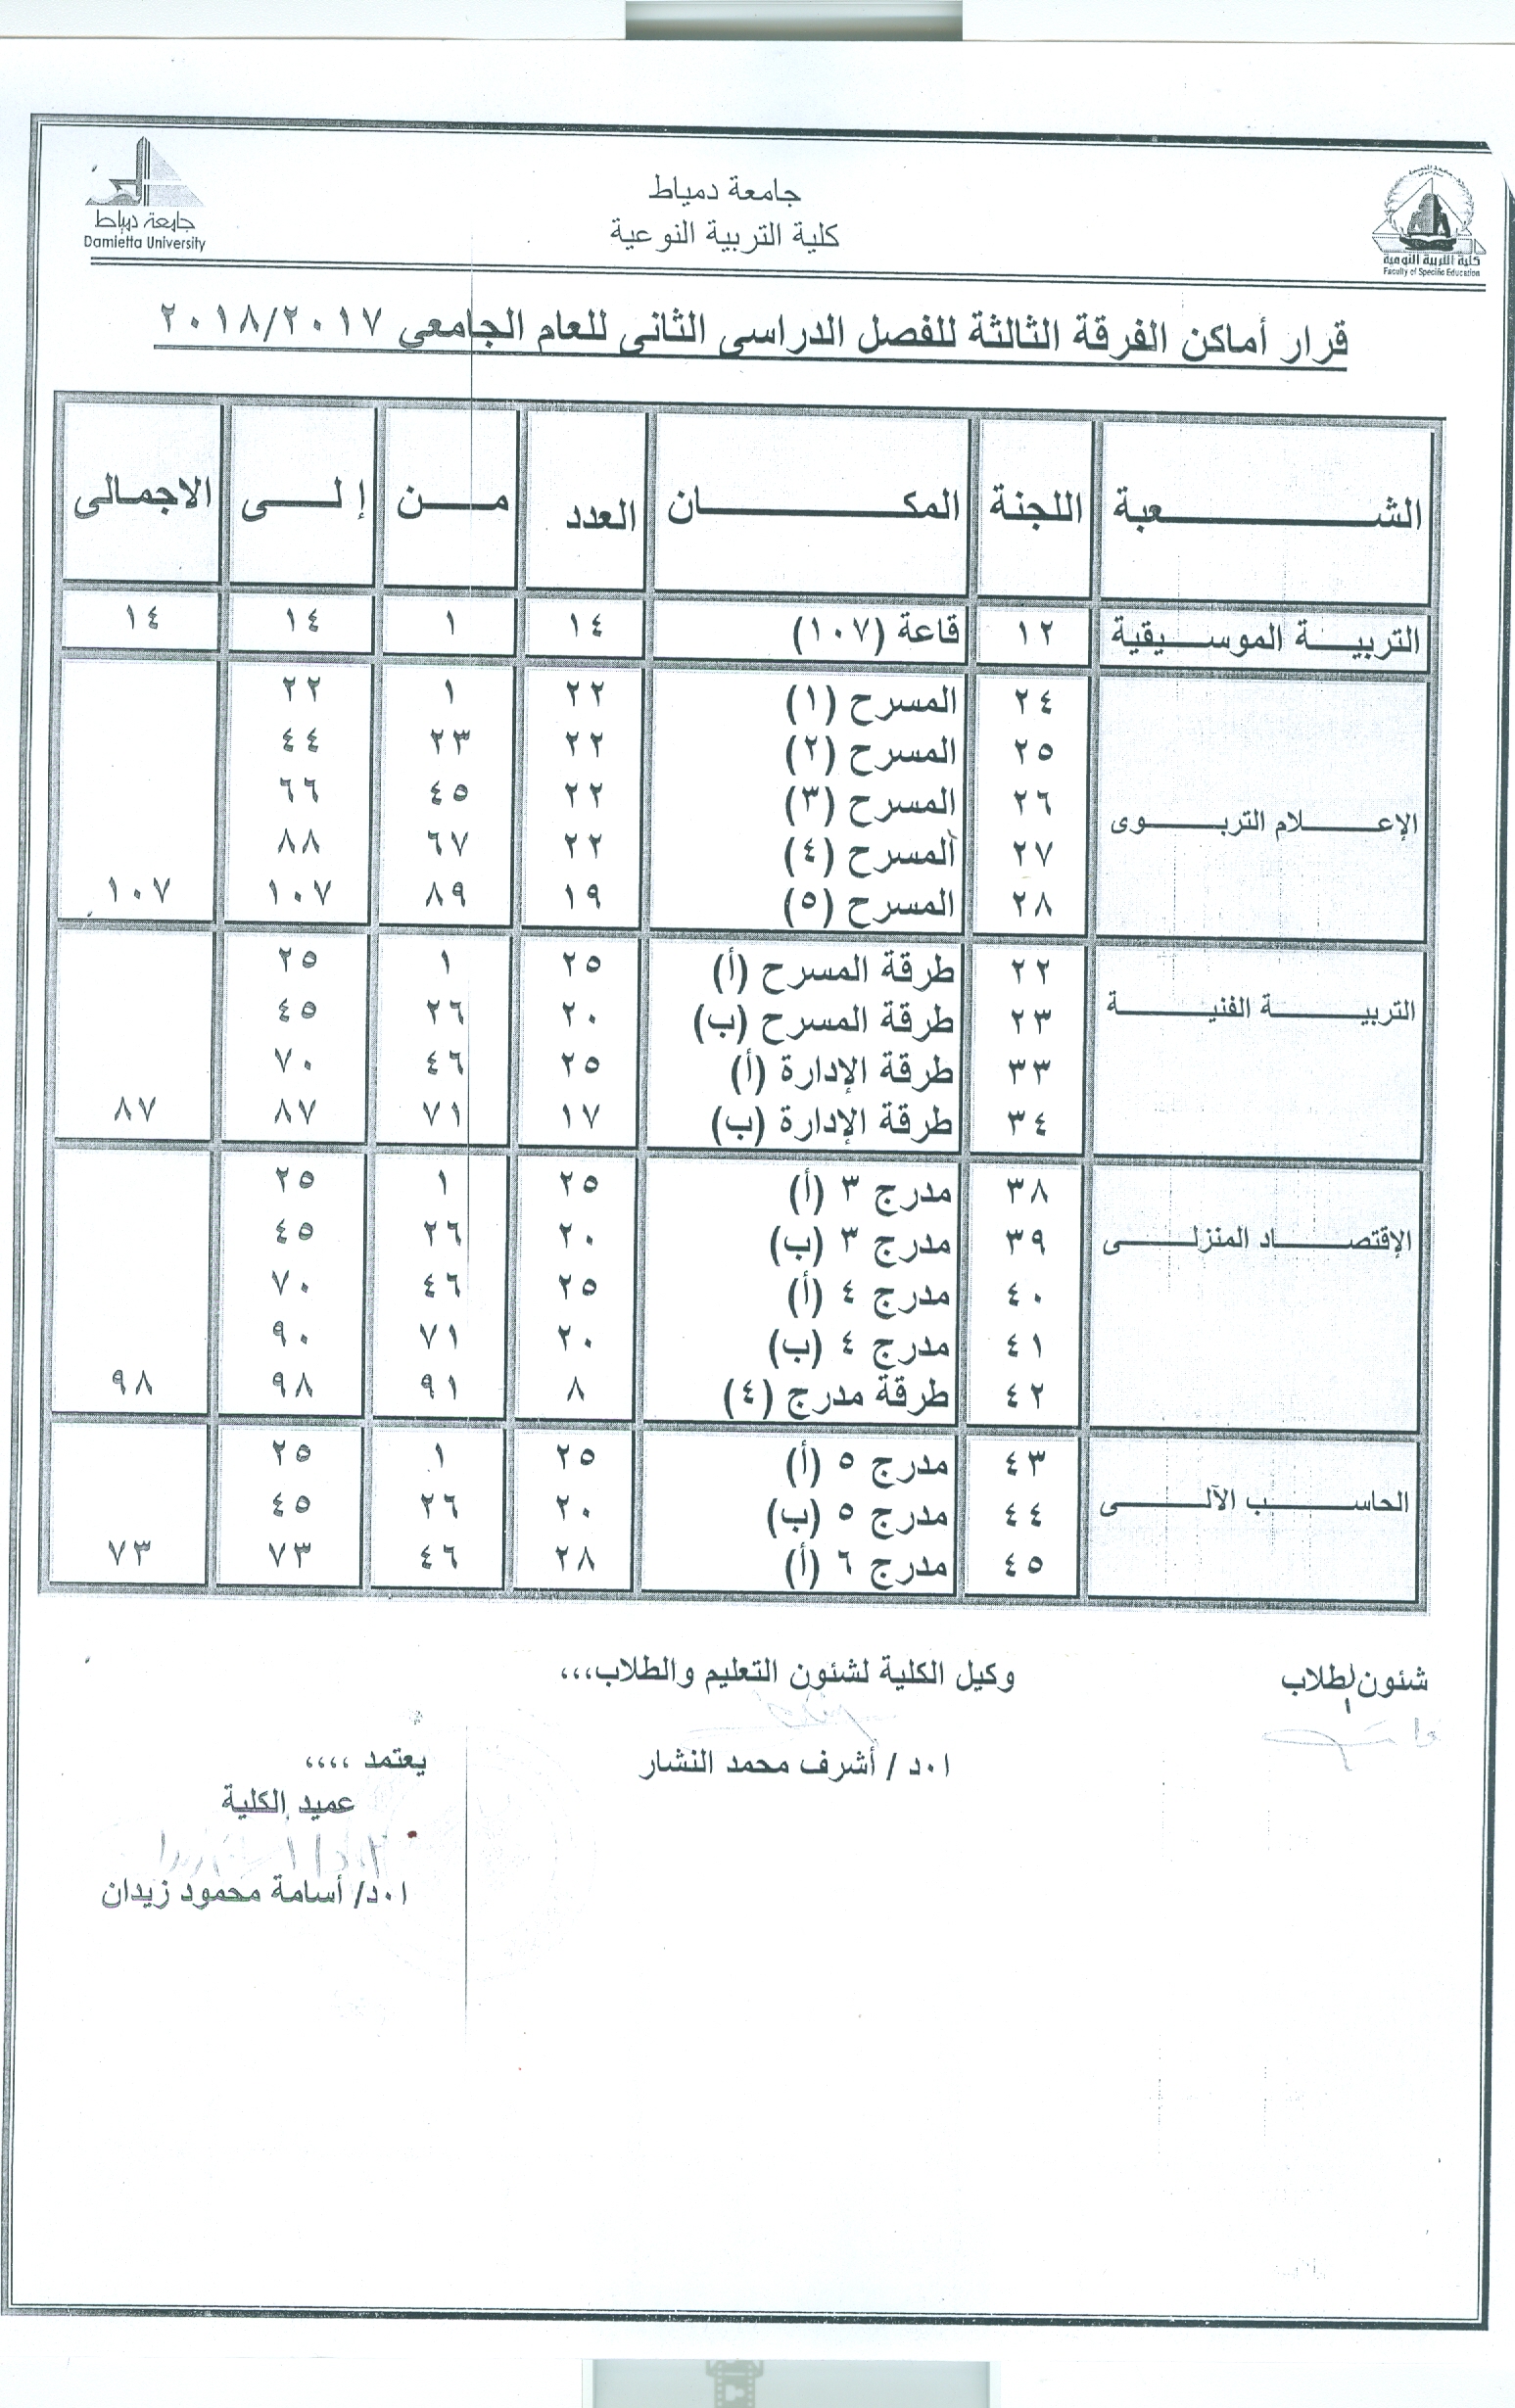 جامعة دمياط
كلية التربية النوعية
جامعة دمياط
Damietta University
كلية التربية النوعية
Faculty of Specific Education
قرار أماكن الفرقة الثالثة للفصل الدراسى الثانى للعام الجامعي ٢٠١٨/٢٠١٧
الشعبة اللجنة المكان العدد من إلى الاجمالى
التربية الموسيقية ١٢ قاعة (١٠٧) ١٤ ١ ١٤ ١٤
٢٤ المسرح (١) ٢٢ ١ ٢٢
٢٥ المسرح (٢) ٢٢ ٢٣ ٤٤
الإعلام التربوى ٢٦ المسرح (٣) ٢٢ ٤٥ ٦٦
٢٧ المسرح (٤) ٢٢ ٦٧ ٨٨
٢٨ المسرح (٥) ١٩ ٨٩ ١٠٧ ١٠٧
٢٢ طرقة المسرح (أ) ٢٥ ١ ٢٥
التربية الفنية ٢٣ طرقة المسرح (ب) ٢٠ ٢٦ ٤٥
٣٣ طرقة الإدارة (أ) ٢٥ ٤٦ ٧٠
٣٤ طرقة الإدارة (ب) ١٧ ٧١ ٨٧ ٨٧
٣٨ مدرج ٣ (أ) ٢٥ ١ ٢٥
الإقتصاد المنزلى ٣٩ مدرج ٣ (ب) ٢٠ ٢٦ ٤٥
٤٠ مدرج ٤ (أ) ٢٥ ٤٦ ٧٠
٤١ مدرج ٤ (ب) ٢٠ ٧١ ٩٠
٤٢ طرقة مدرج (٤) ٨ ٩١ ٩٨ ٩٨
٤٣ مدرج ٥ (أ) ٢٥ ١ ٢٥
الحاسب الآلى ٤٤ مدرج ٥ (ب) ٢٠ ٢٦ ٤٥
٤٥ مدرج ٦ (أ) ٢٨ ٤٦ ٧٣ ٧٣
شئون لطلاب وكيل الكلية لشئون التعليم والطلاب،،،
ا٠د / أشرف محمد النشار
يعتمد ،،،،
عميد الكلية
ا٠د/ أسامة محمود زيدان